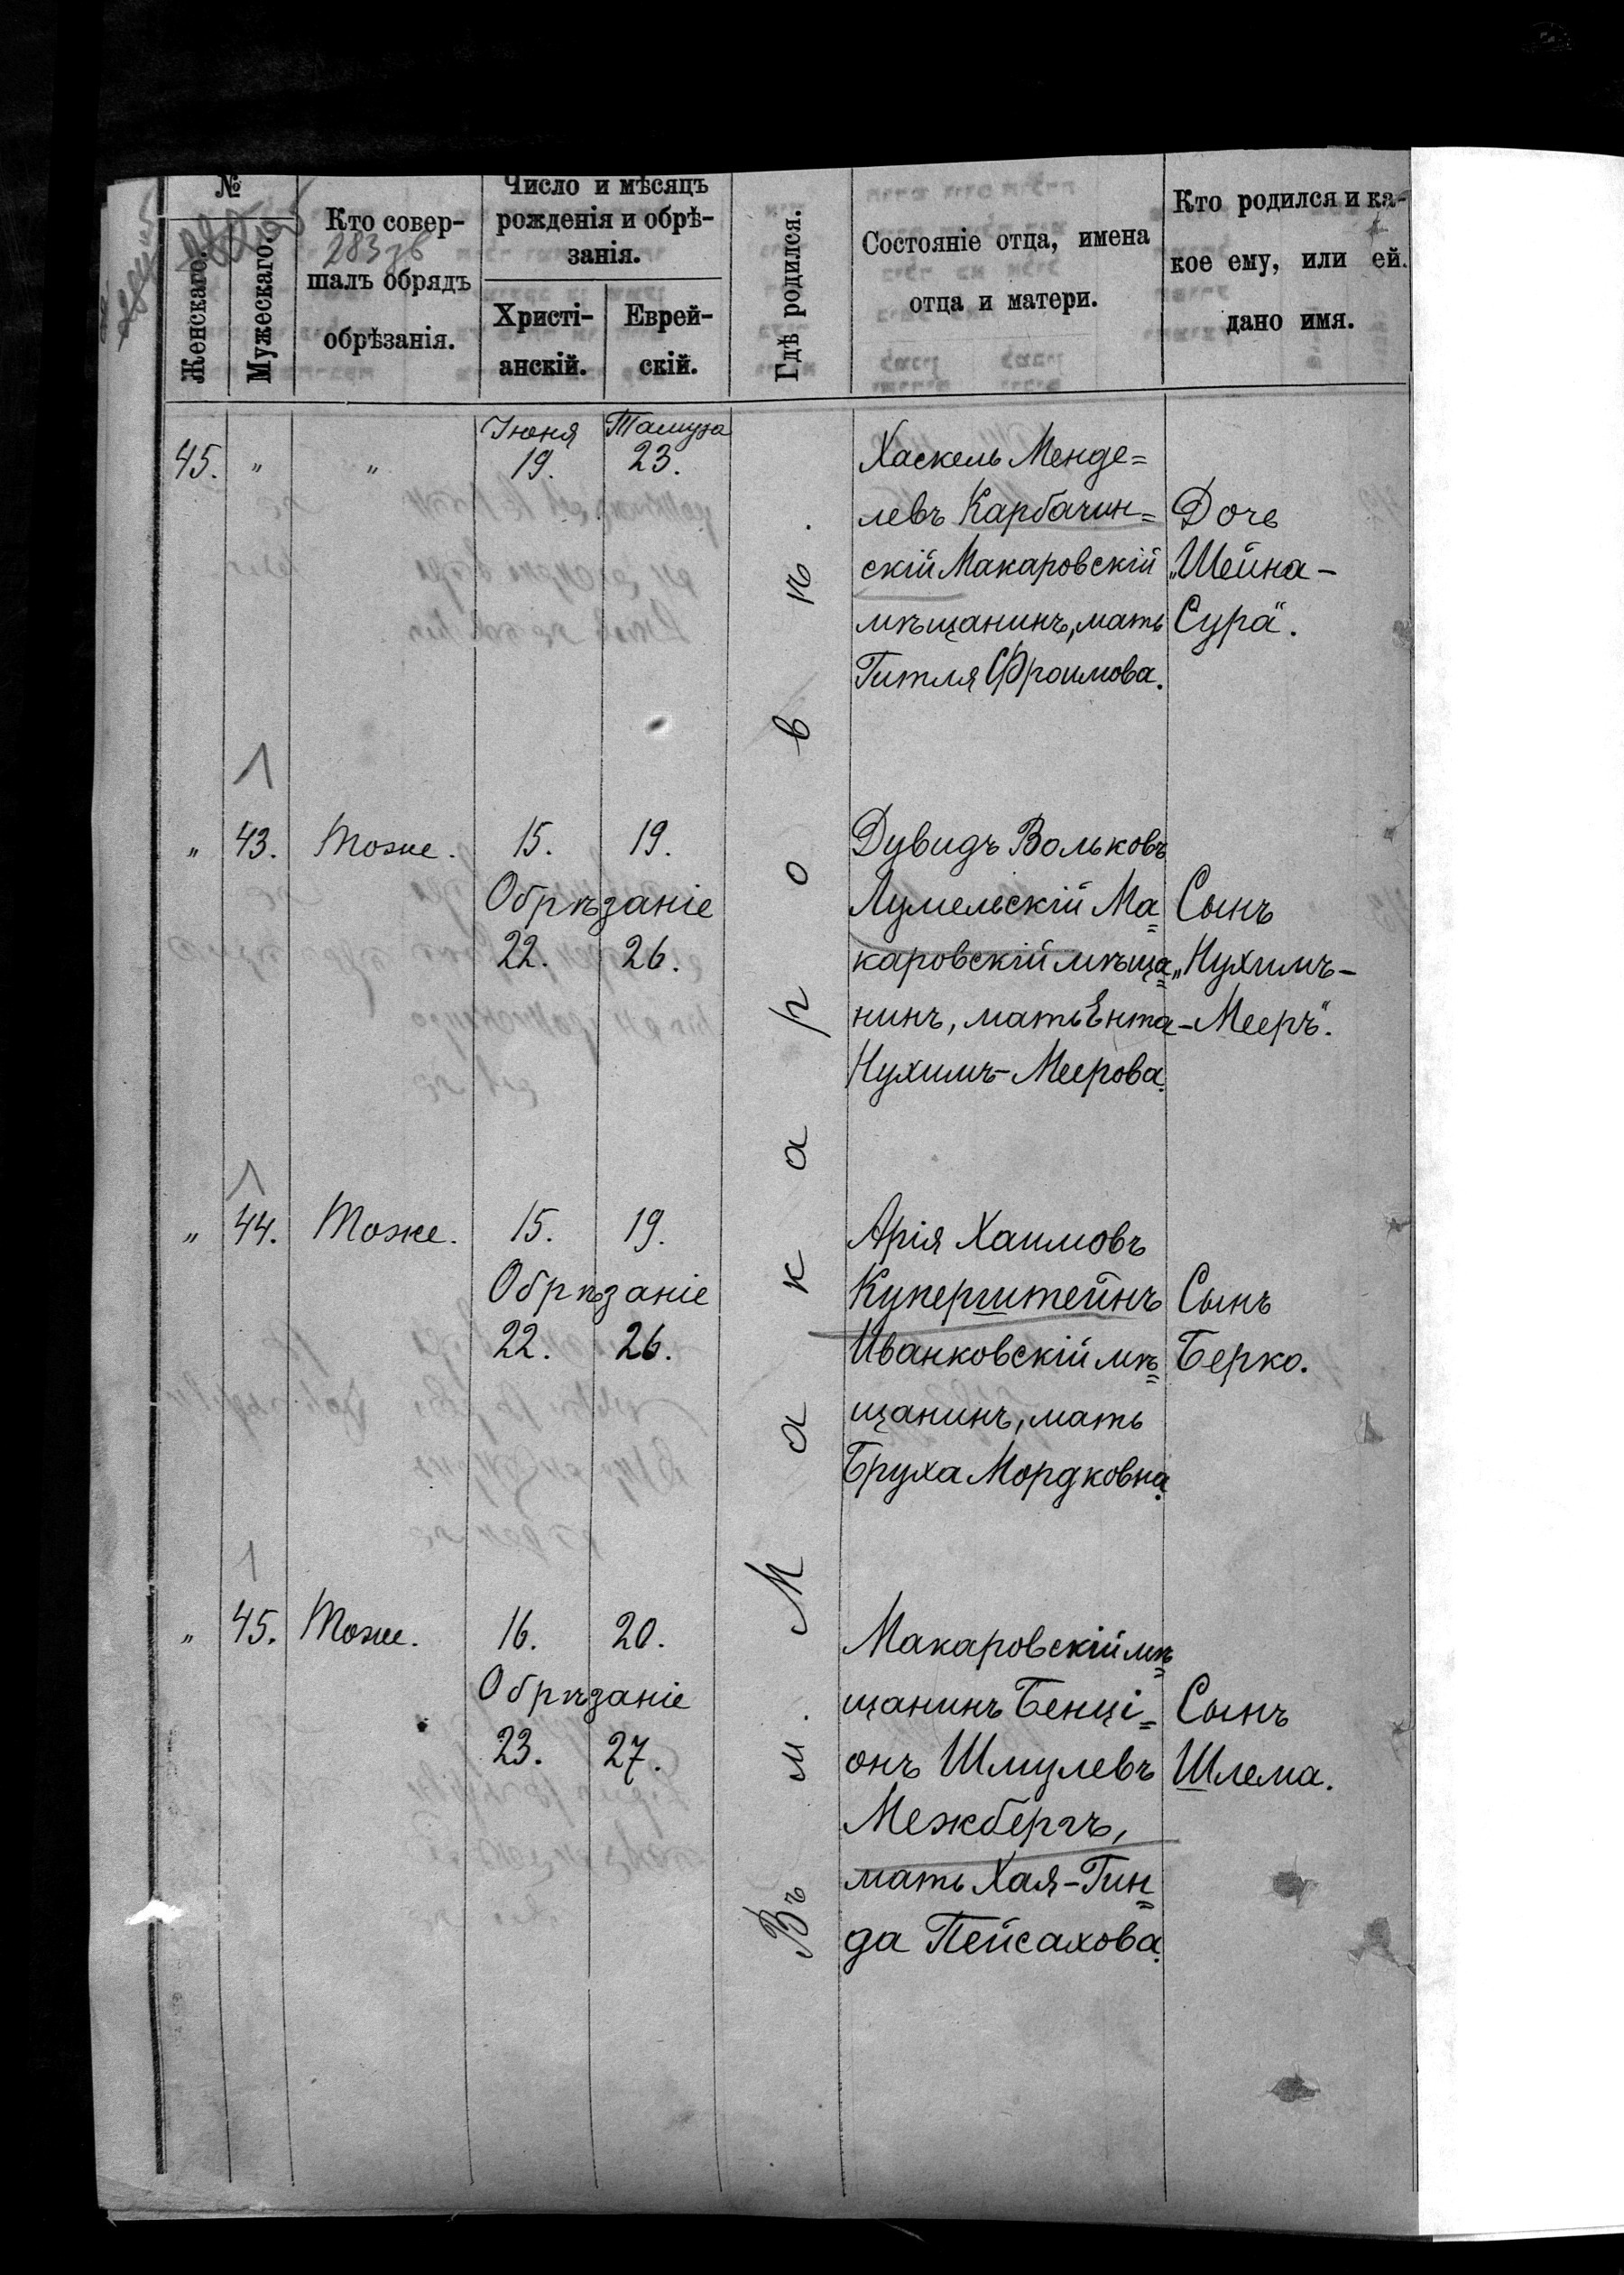 №
Женскаго.
Мужескаго.
Кто совер-
шалъ обрядъ
обрѣзанія.
Число и мѣсяцъ
рожденія и обрѣ-
занія.
Христі-
анскій.
Еврей-
скій.
Гдѣ родился.
Состояніе отца, имена
отца и матери.
Кто родился и ка-
кое ему, или ей.
дано имя.
283 об
Въ м. Макаровѣ.
45. " "
Іюня
19.
Тамуза
23.
Хаскель Менде=
левъ Карбачин=
скій Макаровскій
мѣщанинъ, мать
Гитля Фроимова.
Дочь
„Шейна-
Сура".
" 43. Тоже. 15. 19.
Обрѣзаніе
22. 26.
Дувидъ Вольковъ
Лумельскій Ма=
каровскій мѣща=
нинъ, мать Ента
Нухимъ-Меерова.
Сынъ
„Нухимъ-
-Мееръ".
" 44. Тоже. 15. 19.
Обрѣзаніе
22. 26.
Арія Хаимовъ
Куперштейнъ
Иванковскій мѣ=
щанинъ, мать
Бруха Мордковна.
Сынъ
Берко.
" 45. Тоже. 16. 20.
Обрѣзаніе
23. 27.
Макаровскій мѣ=
щанинъ Бенці=
онъ Шмулевъ
Межбергъ,
мать Хая-Гин=
да Пейсахова.
Сынъ
Шлема.